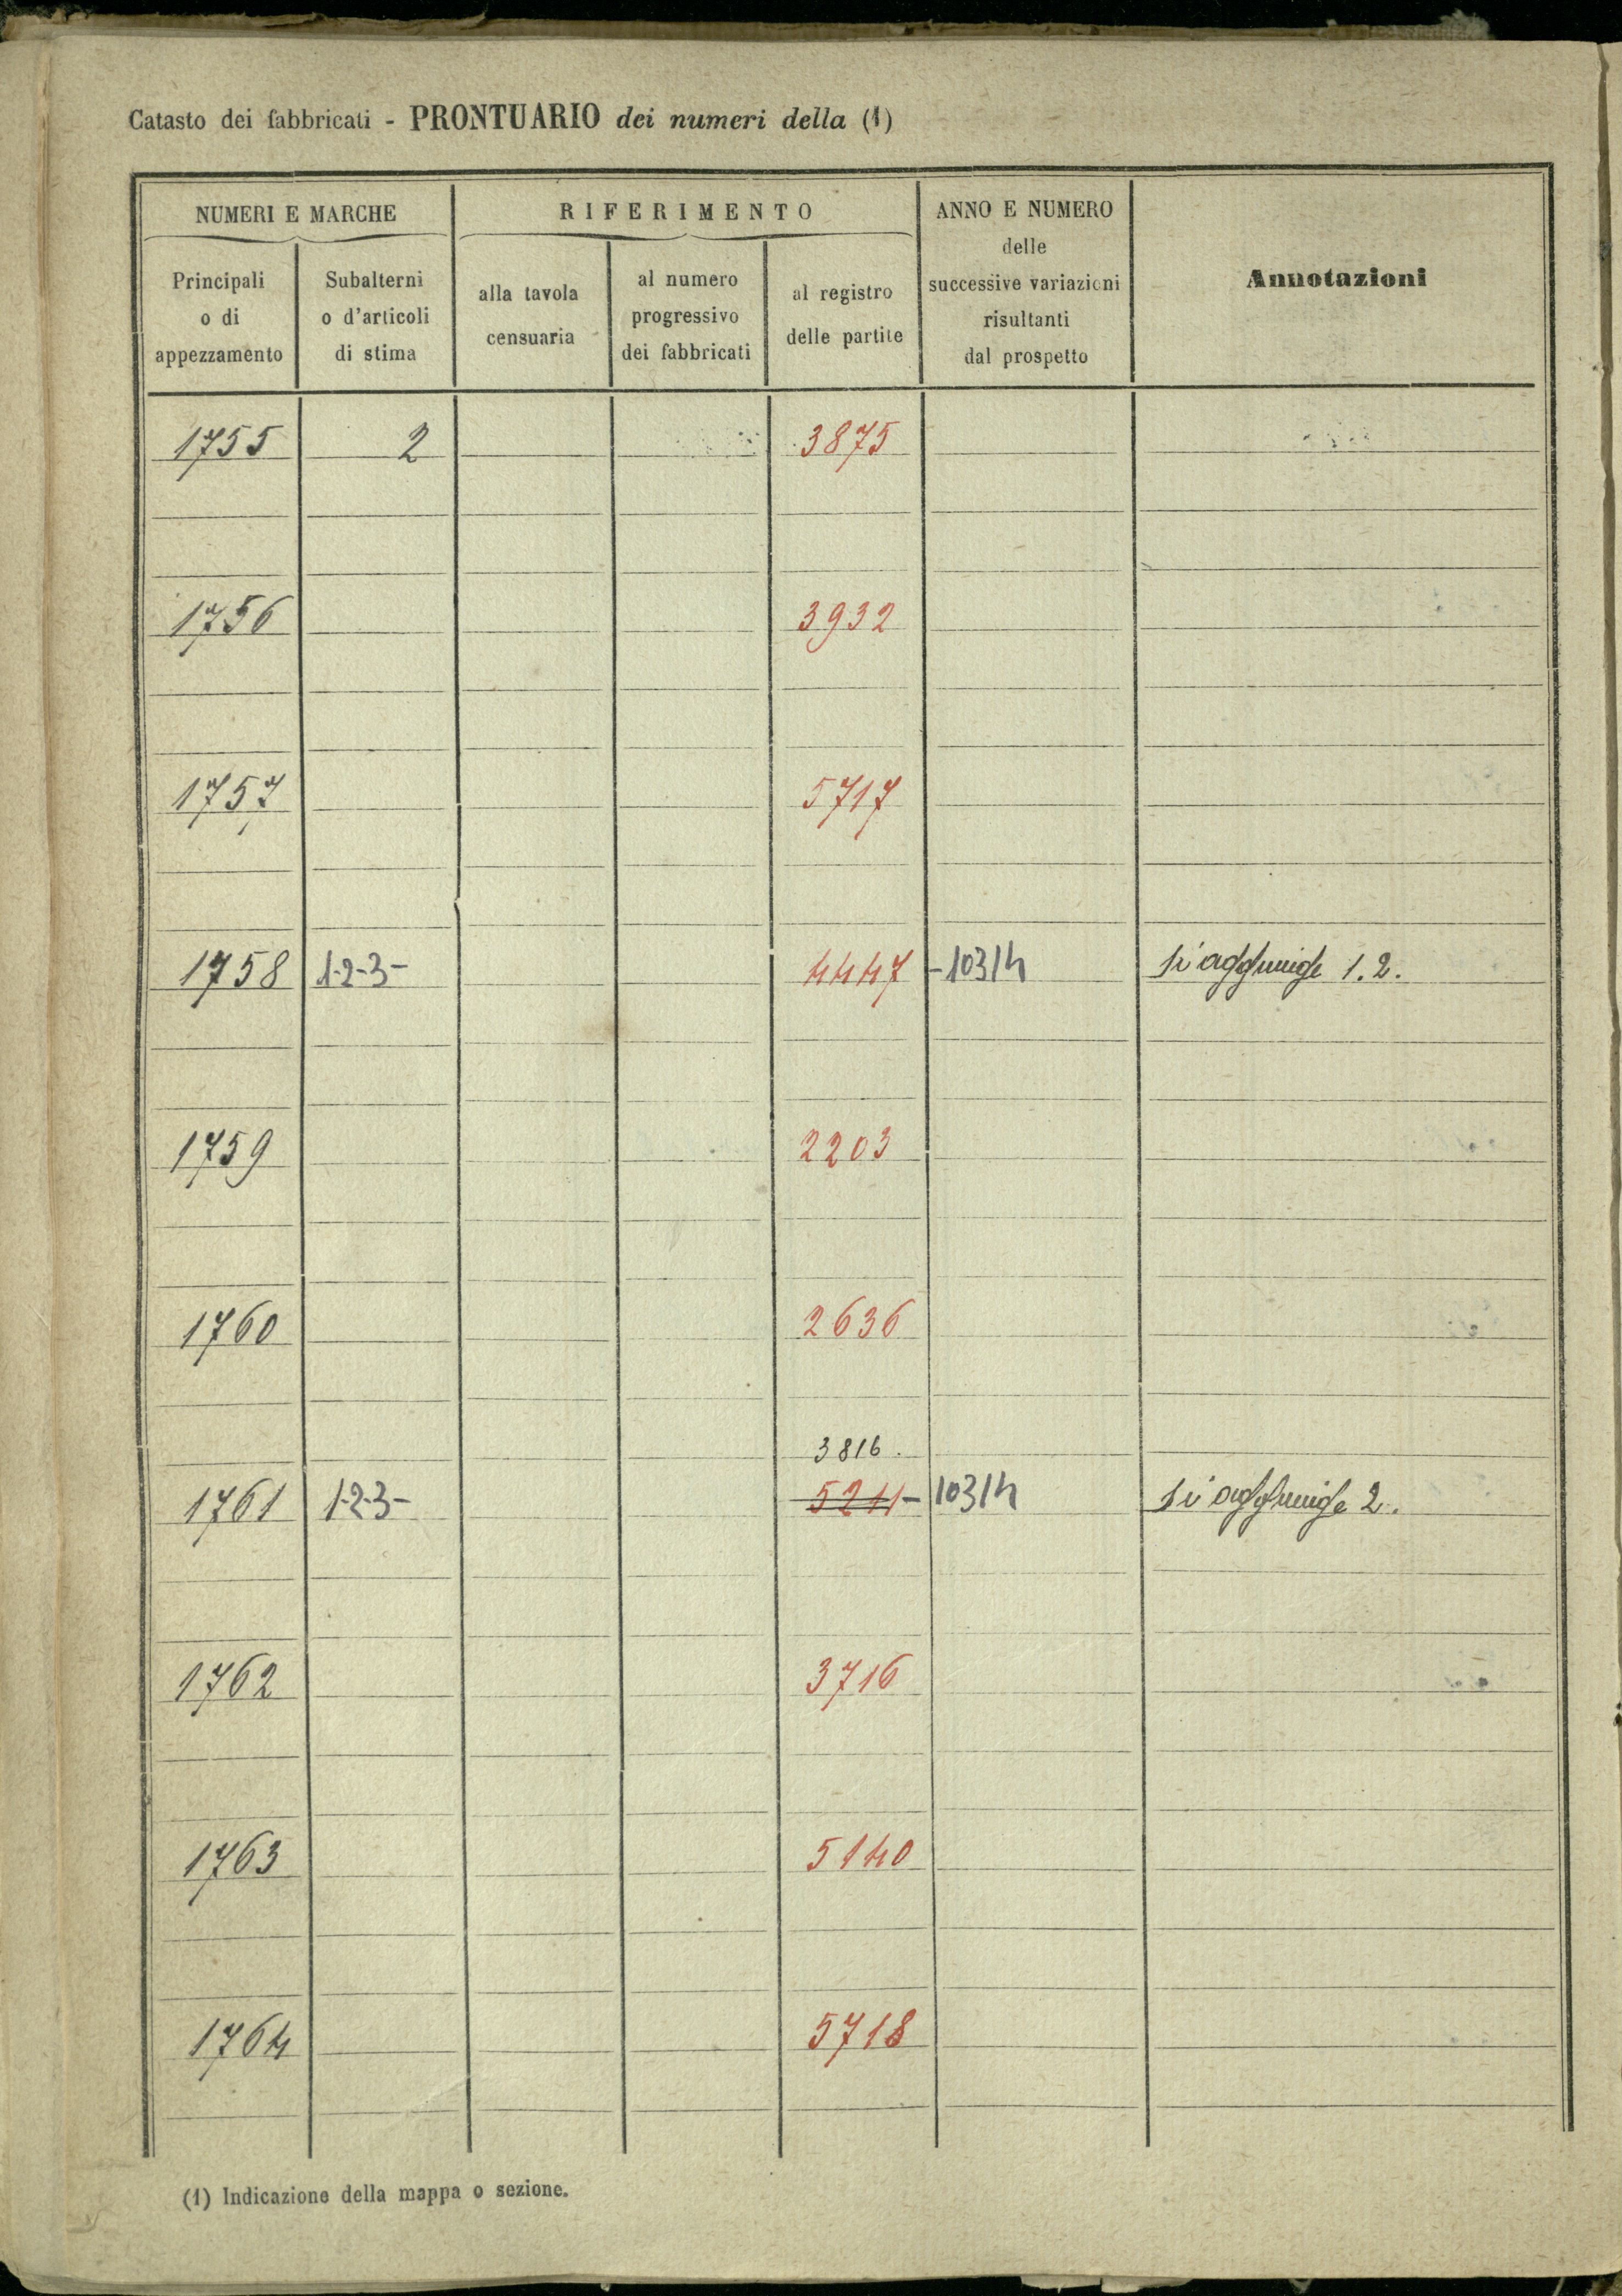 Catasto dei fabbricati - PRONTUARIO dei numeri della (1)
NUMERI E MARCHE
RIFERIMENTO
ANNO E NUMERO
delle
successive variazioni
risultanti
dal prospetto
Annotazioni
Principali
o di
appezzamento
Subalterni
o d'articoli
di stima
alla tavola
censuaria
al numero
progressivo
dei fabbricati
al registro
delle partite
1755 2 3875
1756 3932
1757 5717
1758 1-2-3- 4447 -103/4 si aggiunge 1.2.
1759 2203
1760 2636
3816.
1761 1-2-3- 5211- 103/4 si aggiunge 2.
1762 3716
1763 5140
1764 5718
(1) Indicazione della mappa o sezione.